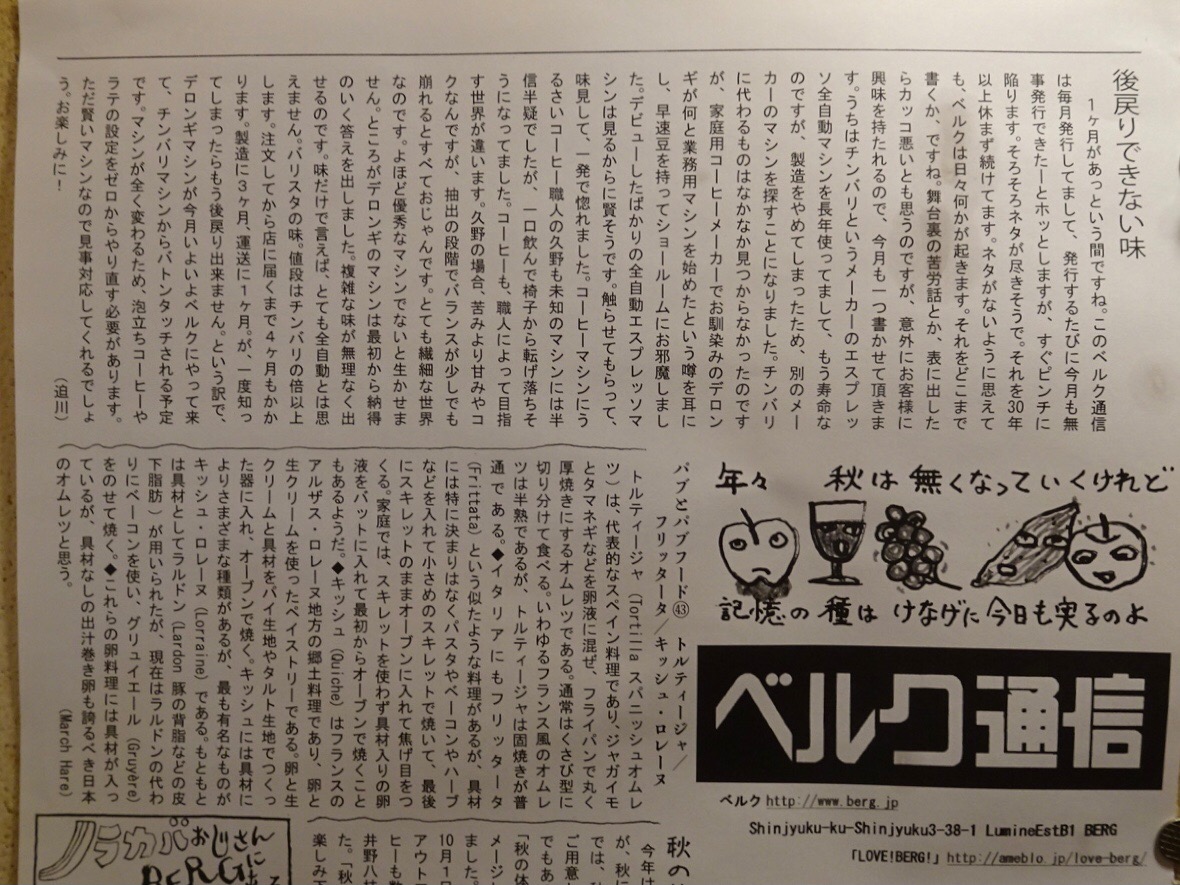 後戻りできない味
1ヶ月があっという間ですね。このベルク通信
は毎月発行してまして、発行するたびに今月も無
事発行できたーとホッとしますが、すぐピンチに
陥ります。そろそろネタが尽きそうで。それを30年
以上休まず続けてます。ネタがないように思えて
も、ベルクは日々何かが起きます。それをどこまで
書くか、ですね。舞台裏の苦労話とか、表に出した
らカッコ悪いとも思うのですが、意外にお客様に
興味を持たれるので、今月も一つ書かせて頂きま
す。うちはチンバリというメーカーのエスプレッ
ソ全自動マシンを長年使ってまして、もう寿命な
のですが、製造をやめてしまったため、別のメー
カーのマシンを探すことになりました。チンバリ
に代わるものはなかなか見つからなかったのです
が、家庭用コーヒーメーカーでお馴染みのデロン
ギが何と業務用マシンを始めたという噂を耳に
し、早速豆を持ってショールームにお邪魔しまし
た。デビューしたばかりの全自動エスプレッソマ
シンは見るからに賢そうです。触らせてもらって、
味見して、一発で惚れました。コーヒーマシンにう
るさいコーヒー職人の久野も未知のマシンには半
信半疑でしたが、一口飲んで椅子から転げ落ちそ
うになってました。コーヒーも、職人によって目指
す世界が違います。久野の場合、苦みより甘みやコ
クなんですが、抽出の段階でバランスが少しでも
崩れるとすべておじゃんです。とても繊細な世界
なのです。よほど優秀なマシンでないと生かせま
せん。ところがデロンギのマシンは最初から納得
のいく答えを出しました。複雑な味が無理なく出
せるのです。味だけで言えば、とても全自動とは思
えません。バリスタの味。値段はチンバリの倍以上
します。注文してから店に届くまで4ヶ月もかか
ります。製造に3ヶ月、運送に1ヶ月。が、一度知っ
てしまったらもう後戻り出来ません。という訳で、
デロンギマシンが今月いよいよベルクにやって来
て、チンバリマシンからバトンタッチされる予定
です。マシンが全く変わるため、泡立ちコーヒーや
ラテの設定をゼロからやり直す必要があります。
ただ賢いマシンなので見事対応してくれるでしょ
う。お楽しみに！
（迫川）
年々 秋は無くなっていくけれど
記憶の種は けなげに今日も実るのよ
ベルク通信
ベルク http://www.berg.jp
Shinjyuku-ku-Shinjyuku3-38-1 LumineEstB1 BERG
「LOVE!BERG!」http://ameblo.jp/love-berg/
パブとパブフード㊸ トルティージャ/
フリッタータ/キッシュ・ロレーヌ
トルティージャ（Tortilla スパニッシュオムレ
ツ）は、代表的なスペイン料理であり、ジャガイモ
とタマネギなどを卵液に混ぜ、フライパンで丸く
厚焼きにするオムレツである。通常はくさび型に
切り分けて食べる。いわゆるフランス風のオムレ
ツは半熟であるが、トルティージャは固焼きが普
通である。◆イタリアにもフリッタータ
（Frittata）という似たような料理があるが、具材
には特に決まりはなくパスタやベーコンやハーブ
などを入れて小さめのスキレットで焼いて、最後
にスキレットのままオーブンに入れて焦げ目をつ
くる。家庭では、スキレットを使わず具材入りの卵
液をバットに入れて最初からオーブンで焼くこと
もあるようだ。◆キッシュ（Quiche）はフランスの
アルザス・ロレーヌ地方の郷土料理であり、卵と
生クリームを使ったペイストリーである。卵と生
クリームと具材をパイ生地やタルト生地でつくっ
た器に入れ、オーブンで焼く。キッシュには具材に
よりさまざまな種類があるが、最も有名なものが
キッシュ・ロレーヌ（Lorraine）である。もともと
は具材としてラルドン（Lardon 豚の背脂などの皮
下脂肪）が用いられたが、現在はラルドンの代わ
りにベーコンを使い、グリュイエール（Gruyère）
をのせて焼く。◆これらの卵料理には具材が入っ
ているが、具材なしの出汁巻き卵も誇るべき日本
のオムレツと思う。
（March Hare）
秋の
今年は
が、秋に
では、秋
ご用意し
でもあ
「秋の体
メージし
ました。
10月1日
アウト
ヒーも数
井野八枝
た。「秋
楽しみ下
ノラカバおじさん
BERGに